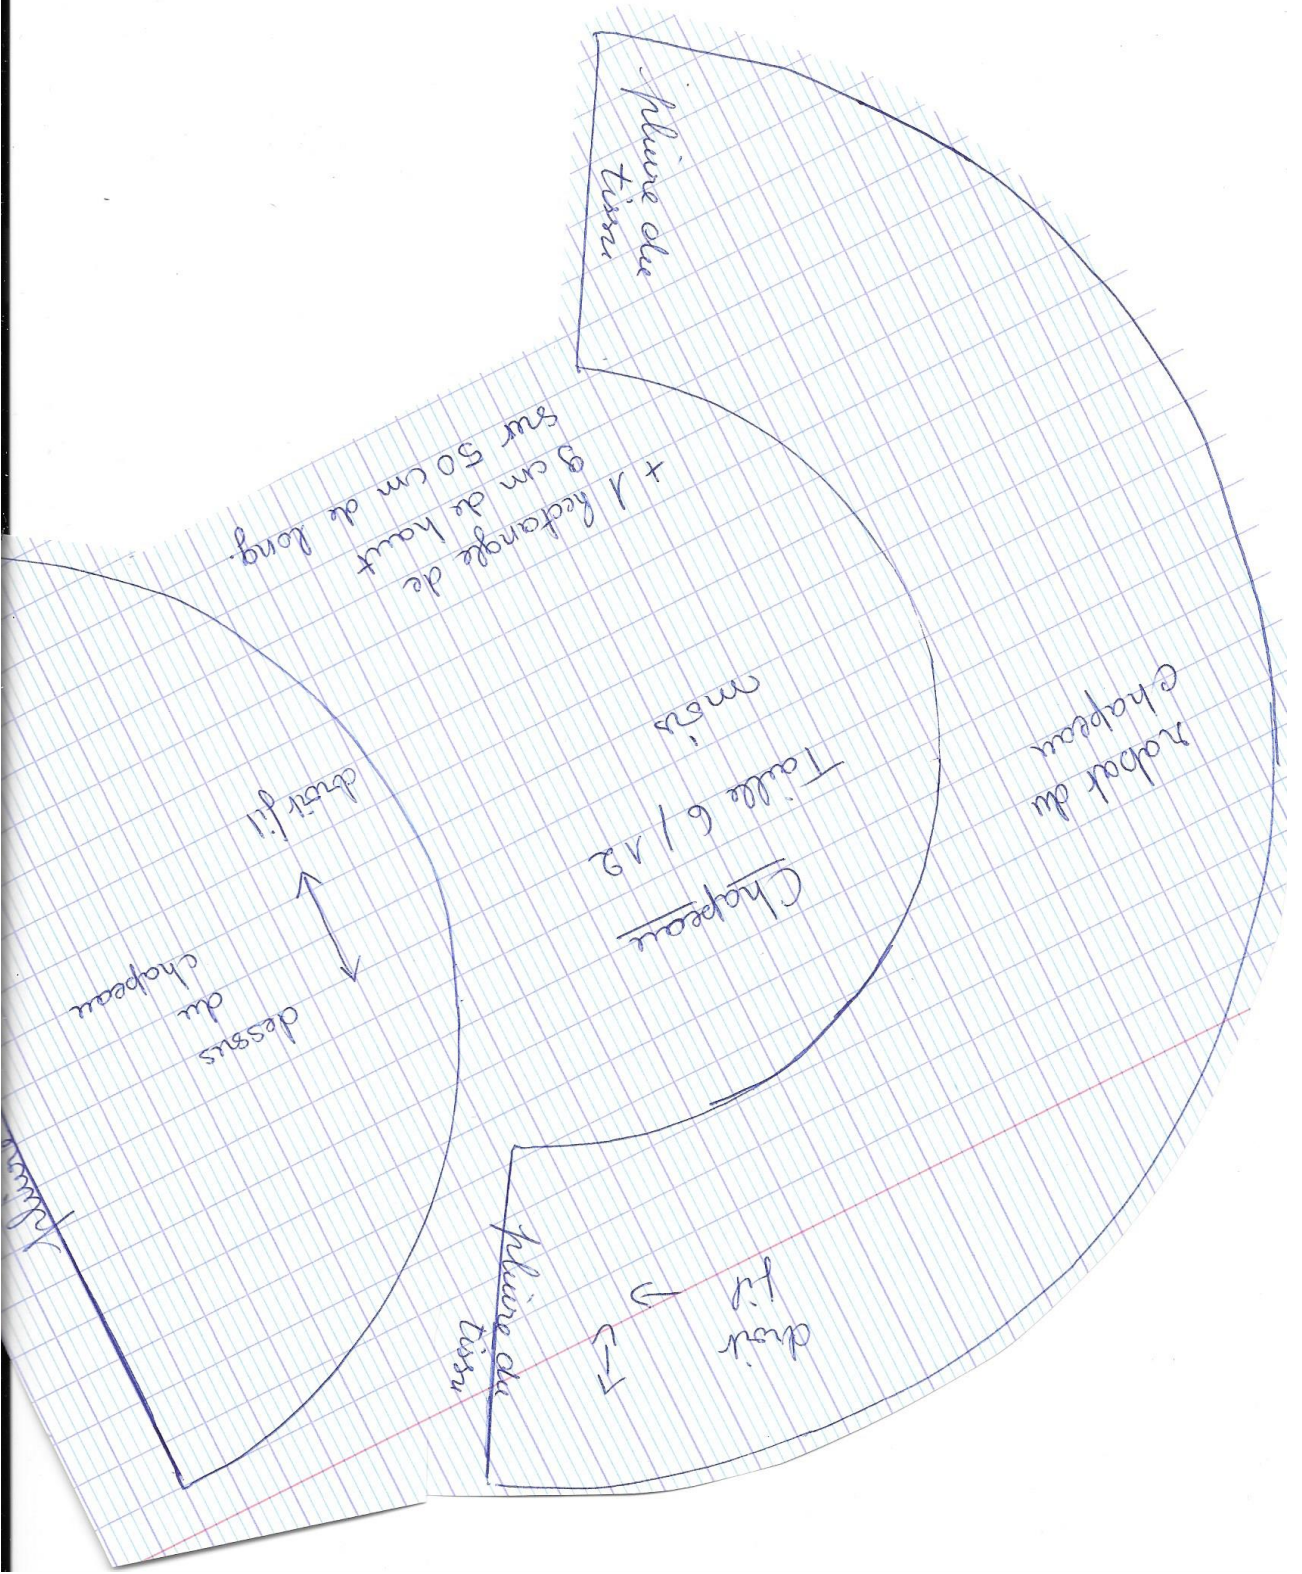 pliure du
tissu
+ 1 rectangle de
9 cm de haut
sur 50 cm de long.
Chapeau
Taille 6/12
mois
rabat du
chapeau
droit fil
dessus
du
chapeau
pliure
pliure du
tissu
droit
fil